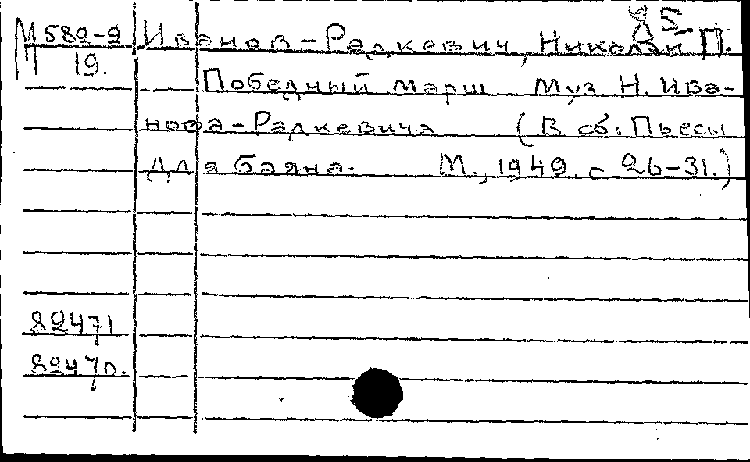 85
М 589-9 Иванов-Радкевич, Николай П.
М 19.
Победный марш Муз Н. Ива-
нова-Радкевича (В сб: Пьесы
для баяна. М., 1949. с 26-31.)
82471
82470.